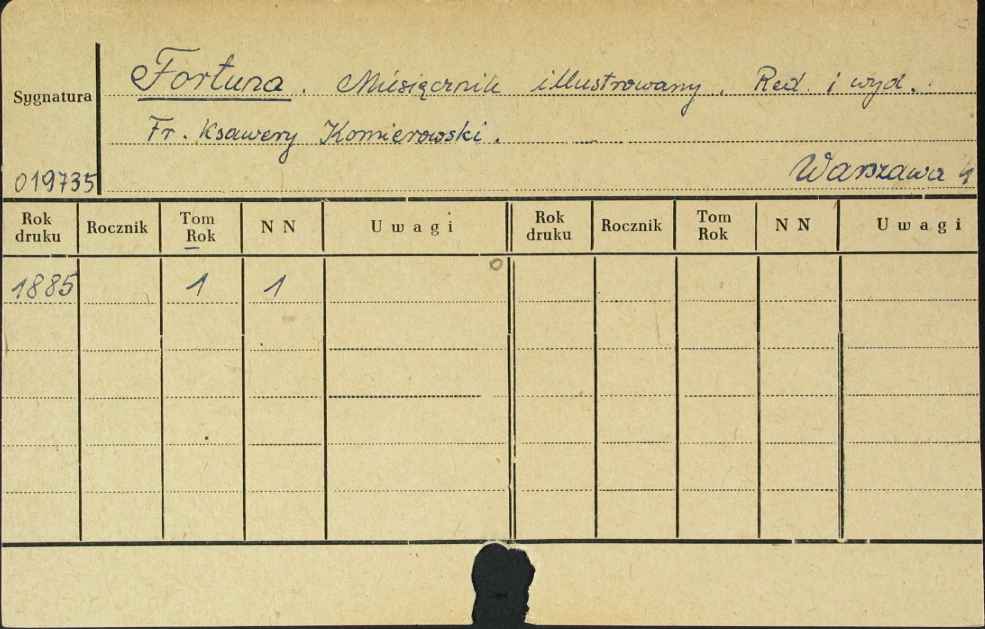 Fortuna. Miesięcznik illustrowany. Red. i wyd.
Sygnatura
Fr. Ksawery Komierowski.
019735
Warszawa 4
Rok druku Rocznik Tom Rok N N Uwagi Rok druku Rocznik Tom Rok N N Uwagi
1885 1 1